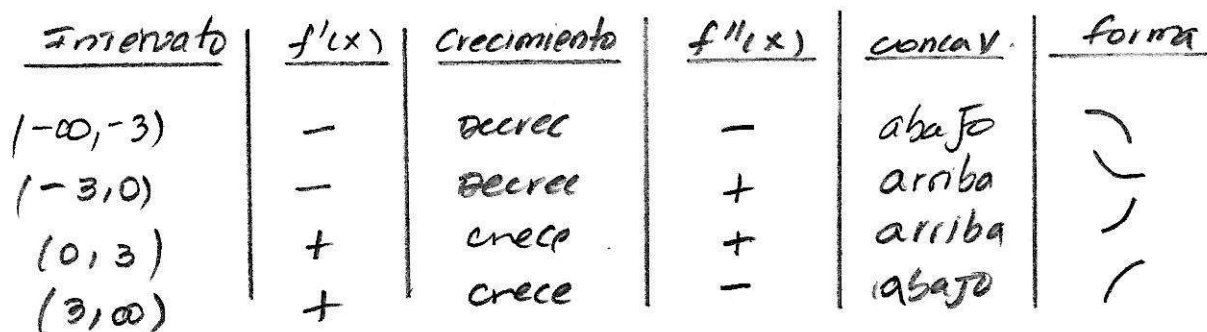 Intervalo f'(x) Crecimiento f''(x) concav. forma
(-∞,-3) - Decrec - abajo
(-3,0) - Decrec + arriba
(0,3) + crece + arriba
(3,∞) + crece - abajo